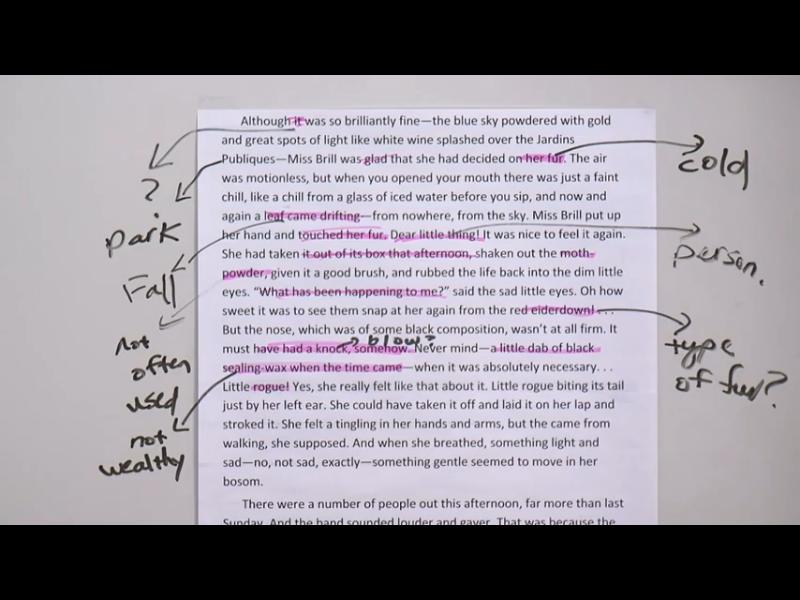 Although it was so brilliantly fine—the blue sky powdered with gold
and great spots of light like white wine splashed over the Jardins
Publiques—Miss Brill was glad that she had decided on her fur. The air
was motionless, but when you opened your mouth there was just a faint
chill, like a chill from a glass of iced water before you sip, and now and
again a leaf came drifting—from nowhere, from the sky. Miss Brill put up
her hand and touched her fur. Dear little thing! It was nice to feel it again.
She had taken it out of its box that afternoon, shaken out the moth-
powder, given it a good brush, and rubbed the life back into the dim little
eyes. “What has been happening to me?” said the sad little eyes. Oh how
sweet it was to see them snap at her again from the red eiderdown! . . .
But the nose, which was of some black composition, wasn’t at all firm. It
must have had a knock, somehow. Never mind—a little dab of black
sealing-wax when the time came—when it was absolutely necessary. . .
Little rogue! Yes, she really felt like that about it. Little rogue biting its tail
just by her left ear. She could have taken it off and laid it on her lap and
stroked it. She felt a tingling in her hands and arms, but the came from
walking, she supposed. And when she breathed, something light and
sad—no, not sad, exactly—something gentle seemed to move in her
bosom.
There were a number of people out this afternoon, far more than last
Sunday. And the band sounded louder and gayer. That was because the
?
park
Fall
not
often
used
not
wealthy
blow?
cold
person.
type
of fur?